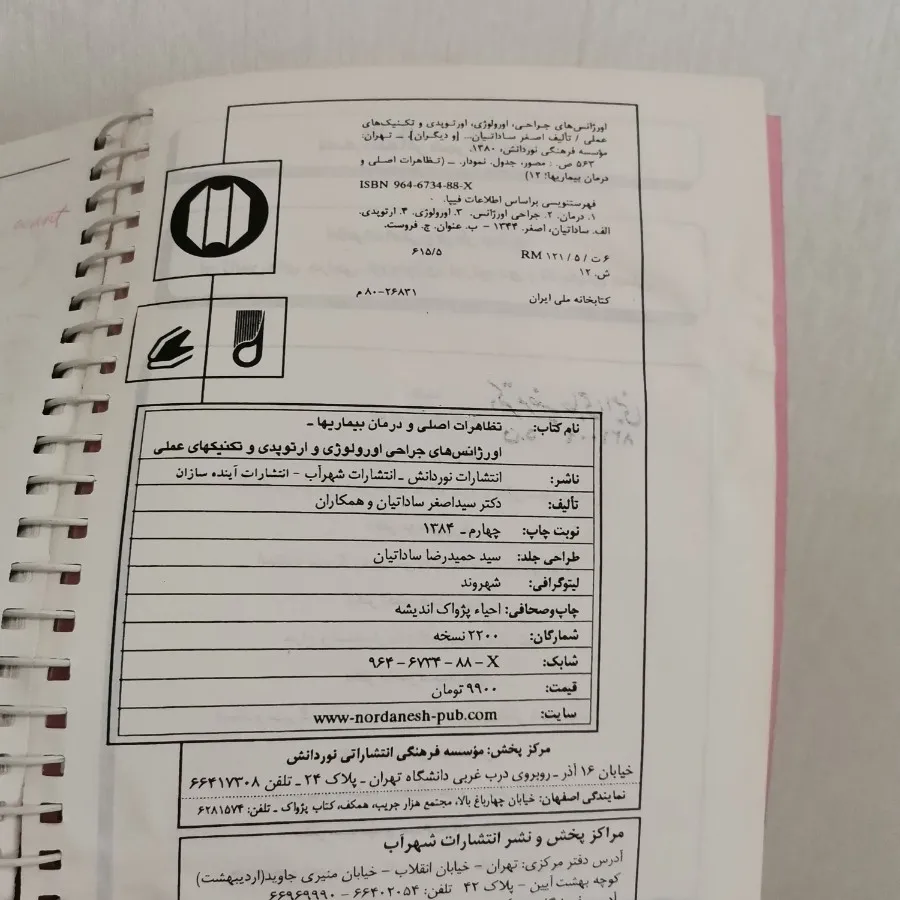 اورژانس‌های جراحی، اورولوژی، اورتوپدی و تکنیک‌های
عملی / تألیف اصغر ساداتیان... [و دیگران]. ــ تهران:
مؤسسه فرهنگی نوردانش، ۱۳۸۰.
۵۶۳ ص. : مصور، جدول، نمودار. ــ (تظاهرات اصلی و
درمان بیماریها؛ ۱۲)
ISBN 964-6734-88-X
فهرستنویسی براساس اطلاعات فیپا.
۱. درمان. ۲. جراحی اورژانس. ۳. اورولوژی. ۴. ارتوپدی.
الف. ساداتیان، اصغر. ۱۳۴۴ - ب. عنوان. ج. فروست.
۶ت / ۵ / ۱۲۱ RM ۶۱۵/۵
ش. ۱۲
کتابخانه ملی ایران ۲۶۸۳۱-۸۰ م
نام کتاب: تظاهرات اصلی و درمان بیماریها ــ
اورژانس‌های جراحی اورولوژی و ارتوپدی و تکنیکهای عملی
ناشر: انتشارات نوردانش ــ انتشارات شهرآب - انتشارات آینده سازان
تألیف: دکتر سیداصغر ساداتیان و همکاران
نوبت چاپ: چهارم ــ ۱۳۸۴
طراحی جلد: سید حمیدرضا ساداتیان
لیتوگرافی: شهروند
چاپ‌وصحافی: احیاء پژواک اندیشه
شمارگان: ۲۲۰۰ نسخه
شابک: ۹۶۴ - ۶۷۳۴ - ۸۸ - X
قیمت: ۹۹۰۰ تومان
سایت: www-nordanesh-pub.com
مرکز پخش: مؤسسه فرهنگی انتشاراتی نوردانش
خیابان ۱۶ آذر ــ روبروی درب غربی دانشگاه تهران ــ پلاک ۲۴ ــ تلفن ۶۶۴۱۷۳۰۸
نمایندگی اصفهان: خیابان چهارباغ بالا، مجتمع هزار جریب، همکف، کتاب پژواک ــ تلفن: ۶۲۸۱۵۷۴
مراکز پخش و نشر انتشارات شهرآب
آدرس دفتر مرکزی: تهران - خیابان انقلاب - خیابان منیری جاوید(اردیبهشت)
کوچه بهشت آیین - پلاک ۴۲ تلفن: ۶۶۴۰۲۰۵۴ - ۶۶۹۶۹۹۹۰